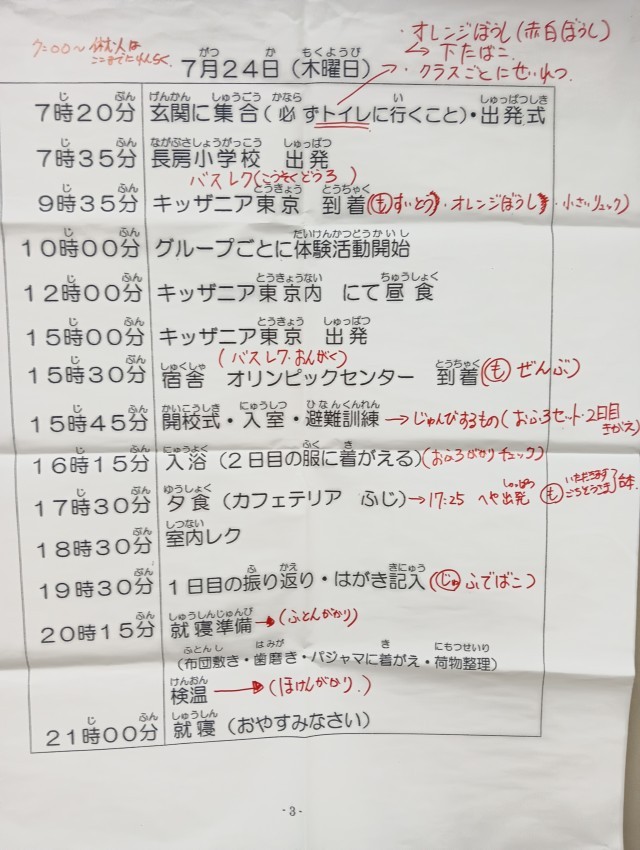 7:00〜 休む人は
ここまでにれんらく
・オレンジぼうし(赤白ぼうし)
↳ 下たばこ
・クラスごとにせいれつ
7月24日(木曜日)
7時20分 玄関に集合(必ずトイレに行くこと)・出発式
7時35分 長房小学校 出発
バスレク(こうそくどうろ)
9時35分 キッザニア東京 到着 (も)すいとう・オレンジぼうし・小さいリュック)
10時00分 グループごとに体験活動開始
12時00分 キッザニア東京内 にて昼食
15時00分 キッザニア東京 出発
(バスレク・おんがく)
15時30分 宿舎 オリンピックセンター 到着 (も)ぜんぶ)
15時45分 開校式・入室・避難訓練 →じゅんびするもの(おふろセット・2日目きがえ)
16時15分 入浴(2日目の服に着がえる)(おふろがかりチェック)
17時30分 夕食(カフェテリア ふじ)→17:25 へや出発 (も)いただきます ごちそうさま
18時30分 室内レク
19時30分 1日目の振り返り・はがき記入 (じゅ)ふでばこ)
20時15分 就寝準備→(ふとんがかり)
(布団敷き・歯磨き・パジャマに着がえ・荷物整理)
検温 →(ほけんがかり)
21時00分 就寝(おやすみなさい)
- 3 -